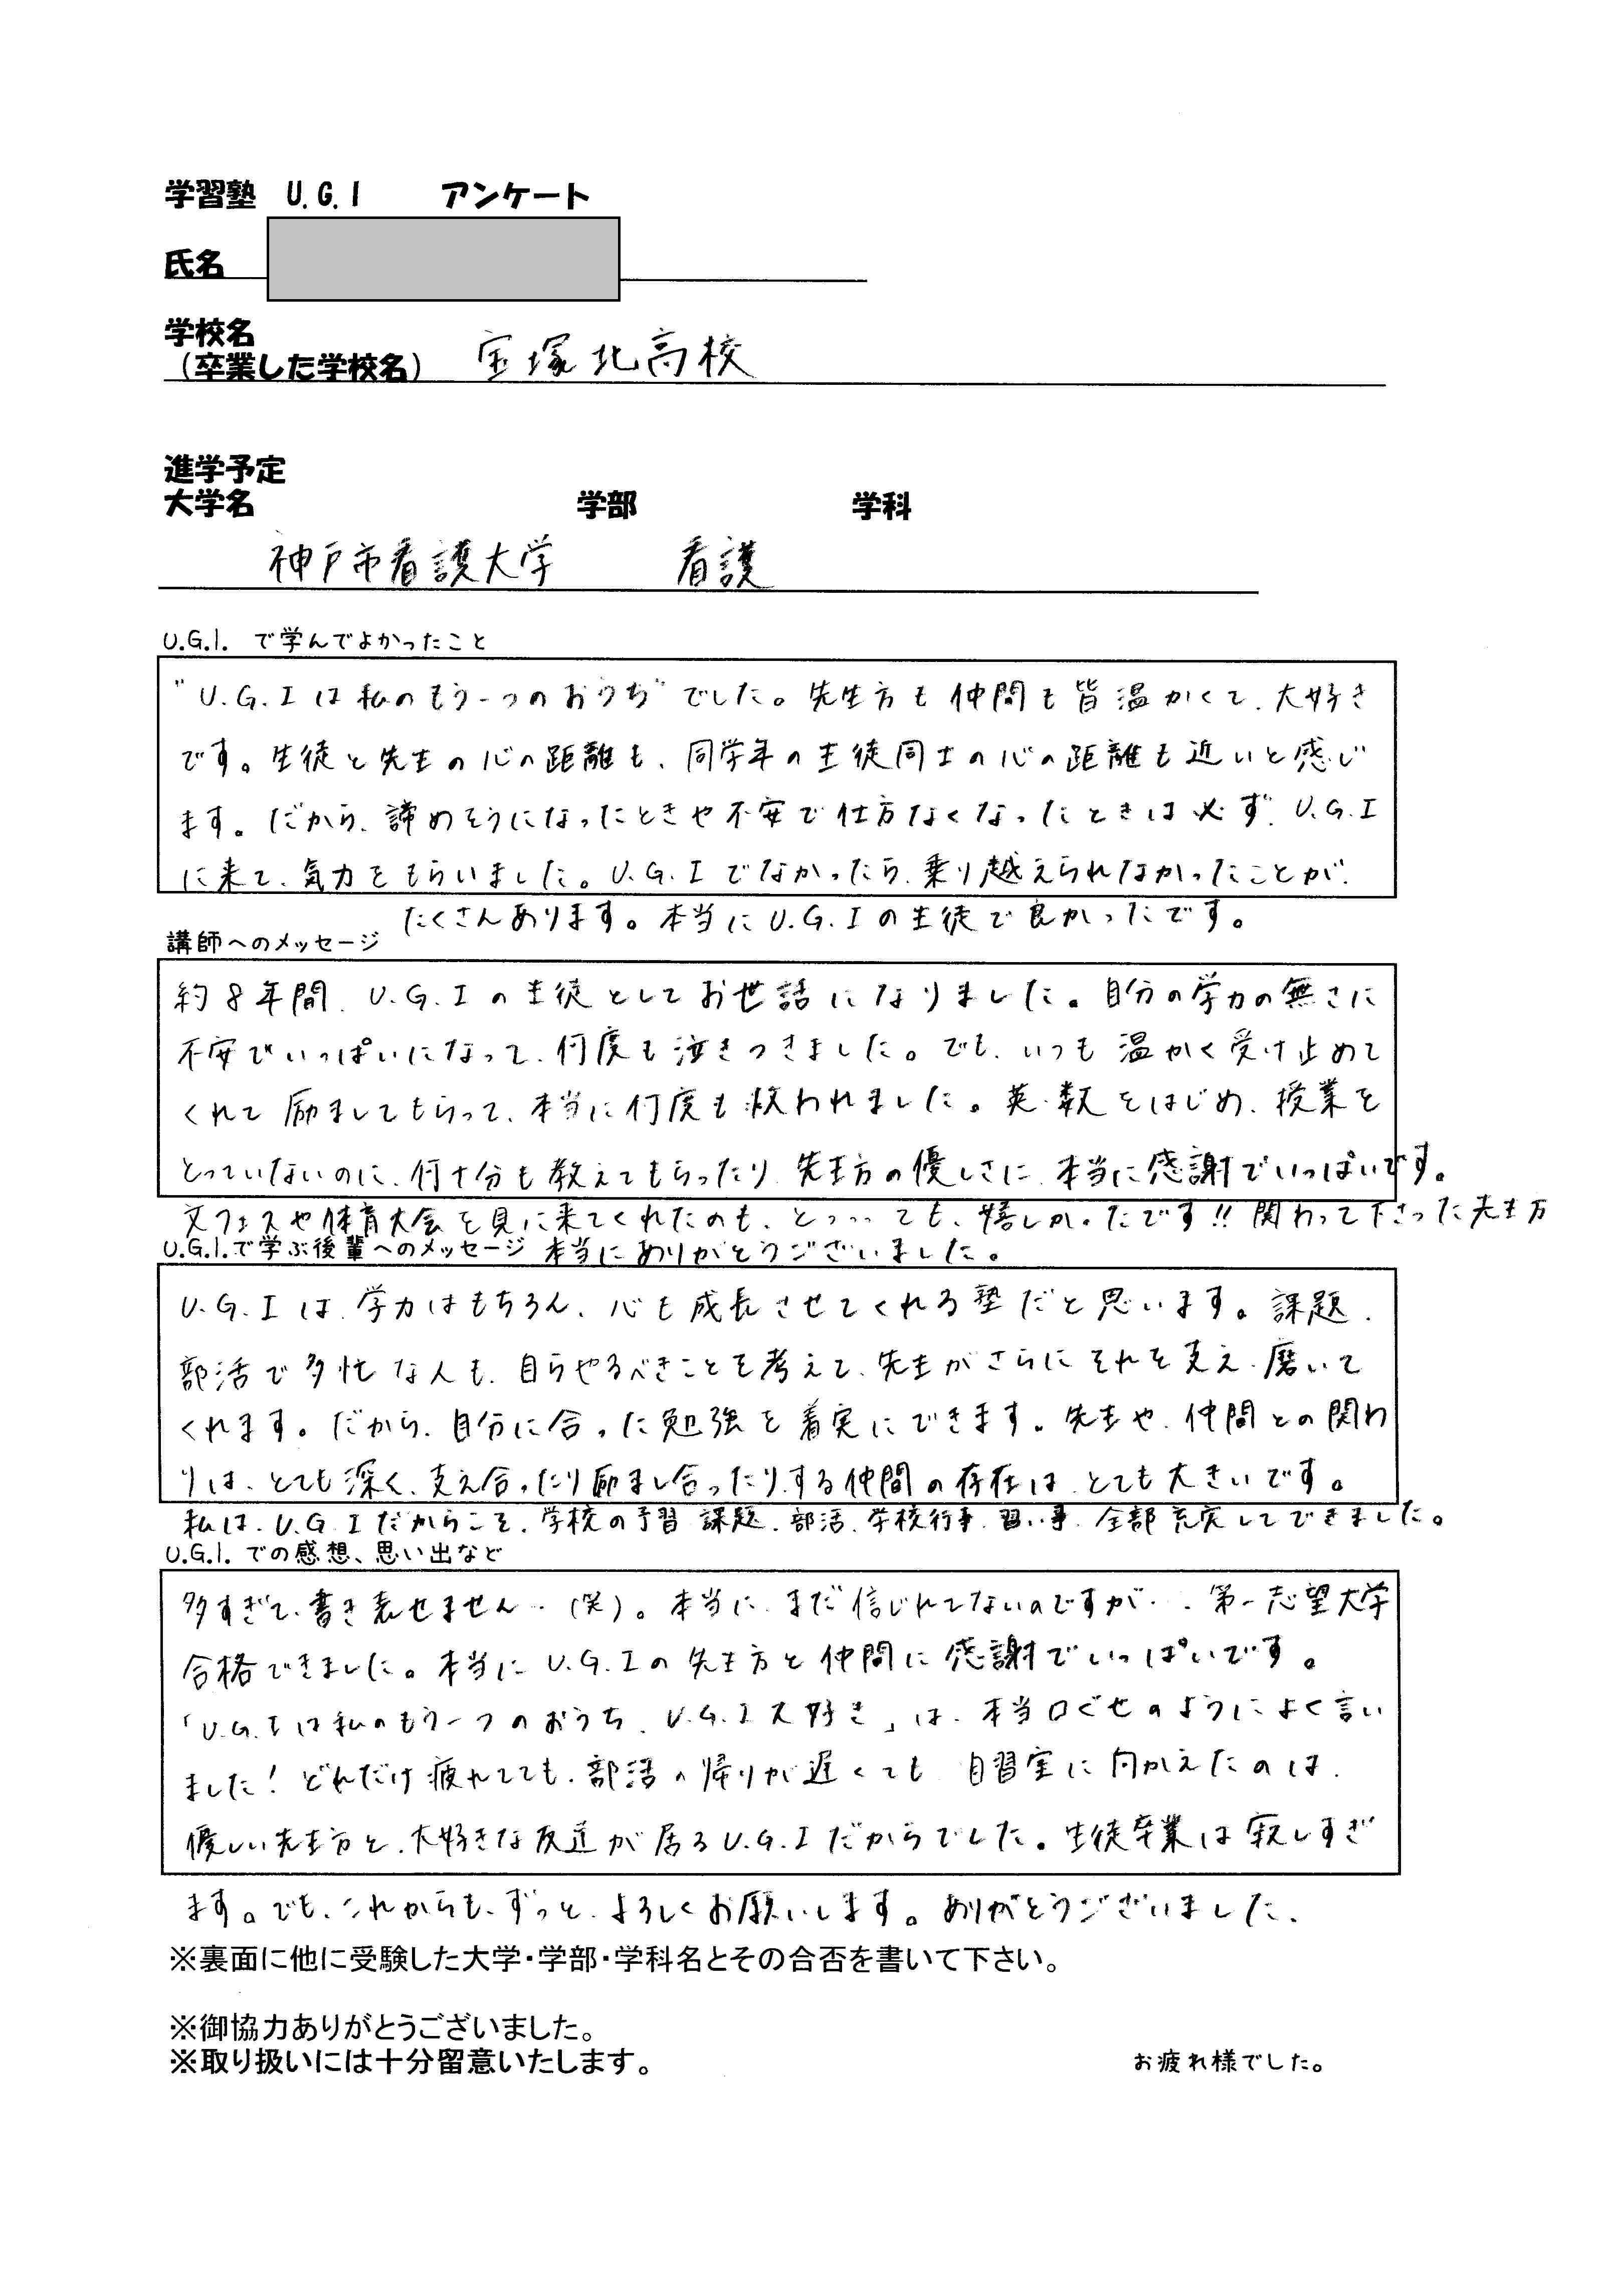 学習塾 U.G.I アンケート
氏名
学校名
(卒業した学校名) 宝塚北高校
進学予定
大学名 学部 学科
神戸市看護大学 看護
U.G.I. で学んでよかったこと
"U.G.Iは私のもう一つのおうち"でした。先生方も仲間も皆温かくて、大好き
です。生徒と先生の心の距離も、同学年の生徒同士の心の距離も近いと感じ
ます。だから、諦めそうになったときや不安で仕方なくなったときは必ず、U.G.I
に来て、気力をもらいました。U.G.Iでなかったら、乗り越えられなかったことが、
たくさんあります。本当にU.G.Iの生徒で良かったです。
講師へのメッセージ
約8年間、U.G.Iの生徒としてお世話になりました。自分の学力の無さに
不安でいっぱいになって、何度も泣きつきました。でも、いつも温かく受け止めて
くれて励ましてもらって、本当に何度も救われました。英・数をはじめ、授業を
とっていないのに、何十分も教えてもらったり、先生方の優しさに、本当に感謝でいっぱいです。
文フェスや体育大会を見に来てくれたのも、とっっっても、嬉しかったです!! 関わって下さった先生方
U.G.I.で学ぶ後輩へのメッセージ 本当にありがとうございました。
U.G.Iは、学力はもちろん、心も成長させてくれる塾だと思います。課題、
部活で多忙な人も、自らやるべきことを考えて、先生がさらにそれを支え、磨いて
くれます。だから、自分に合った勉強を着実にできます。先生や、仲間との関わ
りは、とても深く、支え合ったり励まし合ったりする仲間の存在は、とても大きいです。
私は、U.G.Iだからこそ、学校の予習、課題、部活、学校行事、習い事、全部充実してできました。
U.G.I. での感想、思い出など
多すぎて、書き表せません…(笑)。本当に、まだ信じれてないのですが…、第一志望大学
合格できました。本当にU.G.Iの先生方と仲間に感謝でいっぱいです。
「U.G.Iは私のもう一つのおうち、U.G.I大好き」は、本当口ぐせのようによく言い
ました!どれだけ疲れてても、部活の帰りが遅くても、自習室に向かえたのは、
優しい先生方と、大好きな友達が居るU.G.Iだからでした。生徒卒業は寂しすぎ
ます。でも、これからも、ずっと、よろしくお願いします。ありがとうございました、
※裏面に他に受験した大学・学部・学科名とその合否を書いて下さい。
※御協力ありがとうございました。
※取り扱いには十分留意いたします。 お疲れ様でした。